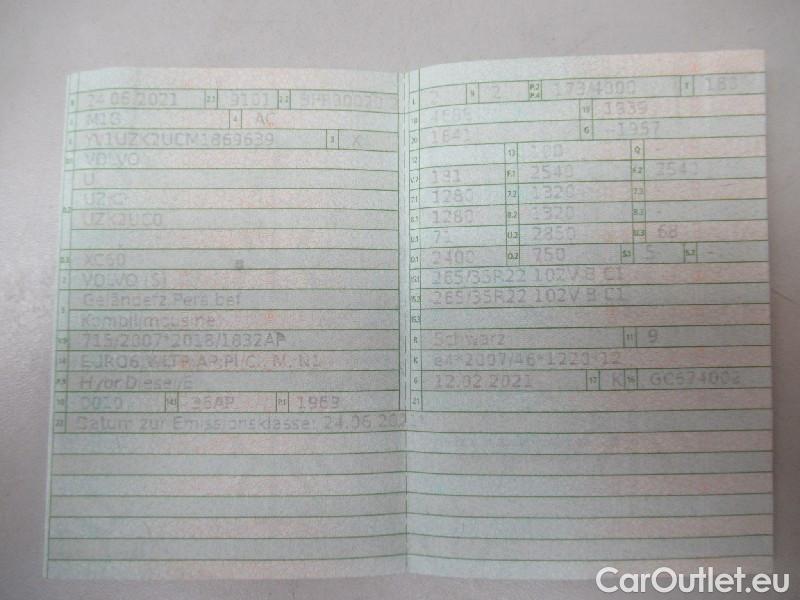 24.06.2021 2.1 9101 2.2
M1G 4 AC
YV1UZK2UCM1869639 3 X
VOLVO
U
UZK2
UZK2UC0
D.3 XC60
2 VOLVO (S)
5 Geländefz.Pers.bef
Kombilimousine
V.9 715/2007*2018/1832AP
14 EURO6
P.3 Hybr.Diesel/E
10 0010 14.1 36AP P.1 1969
22 Datum zur Emissionsklasse: 24.06.202
L 2 9 2 P.2 P.4 173/4000 T 180
18 4688 19 1339
20 1641 G -1957
12 - 13 100 Q -
V.7 191 F.1 2540 F.2 2540
7.1 1280 7.2 1320 7.3 -
8.1 1280 8.2 1320 8.3 -
U.1 71 U.2 2850 U.3 68
O.1 2400 O.2 750 S.1 5 S.2 -
15.1 265/35R22 102V B C1
15.2 265/35R22 102V B C1
15.3
R Schwarz 11 9
K e4*2007/46*1220*12
6 12.02.2021 17 K 16 GC674002
21
CarOutlet.eu